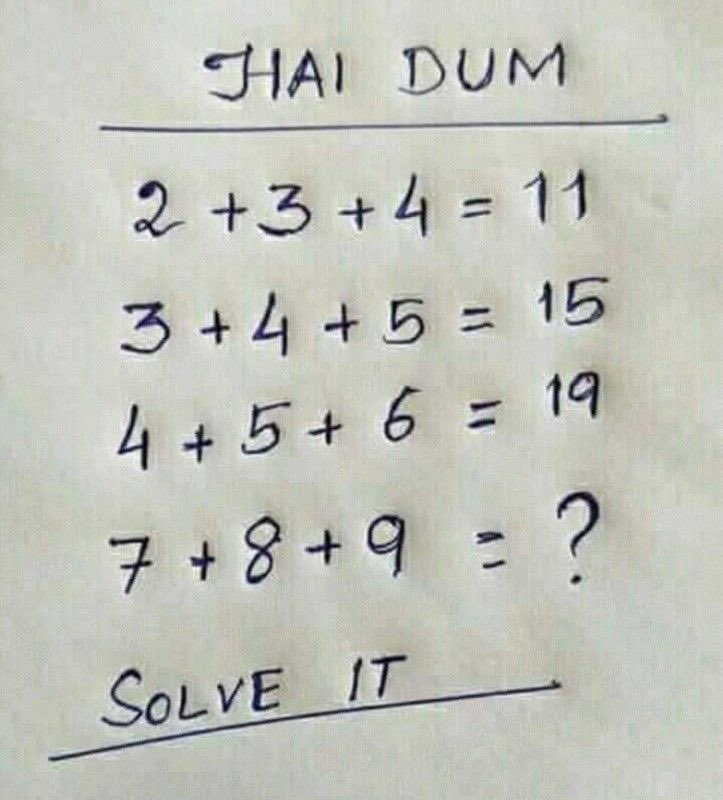 HAI DUM
2 + 3 + 4 = 11
3 + 4 + 5 = 15
4 + 5 + 6 = 19
7 + 8 + 9 = ?
SOLVE IT